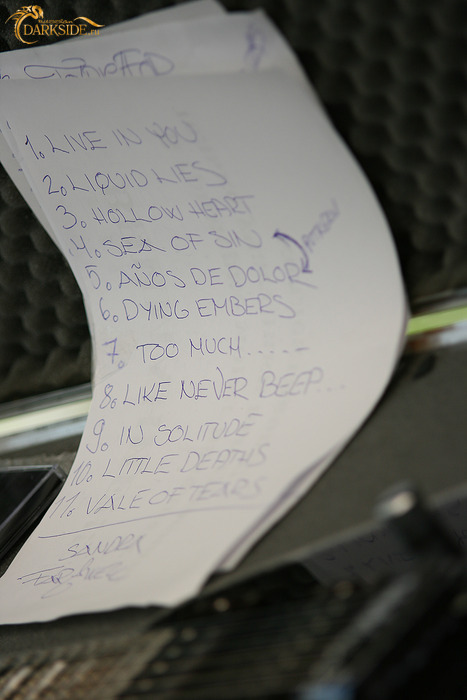 DARKSIDE.ru
1. LIVE IN YOU
2. LIQUID LIES
3. HOLLOW HEART
4. SEA OF SIN
5. AÑOS DE DOLOR
6. DYING EMBERS
7. TOO MUCH......
8. LIKE NEVER BEEP...
9. IN SOLITUDE
10. LITTLE DEATHS
11. VALE OF TEARS
SANDRA